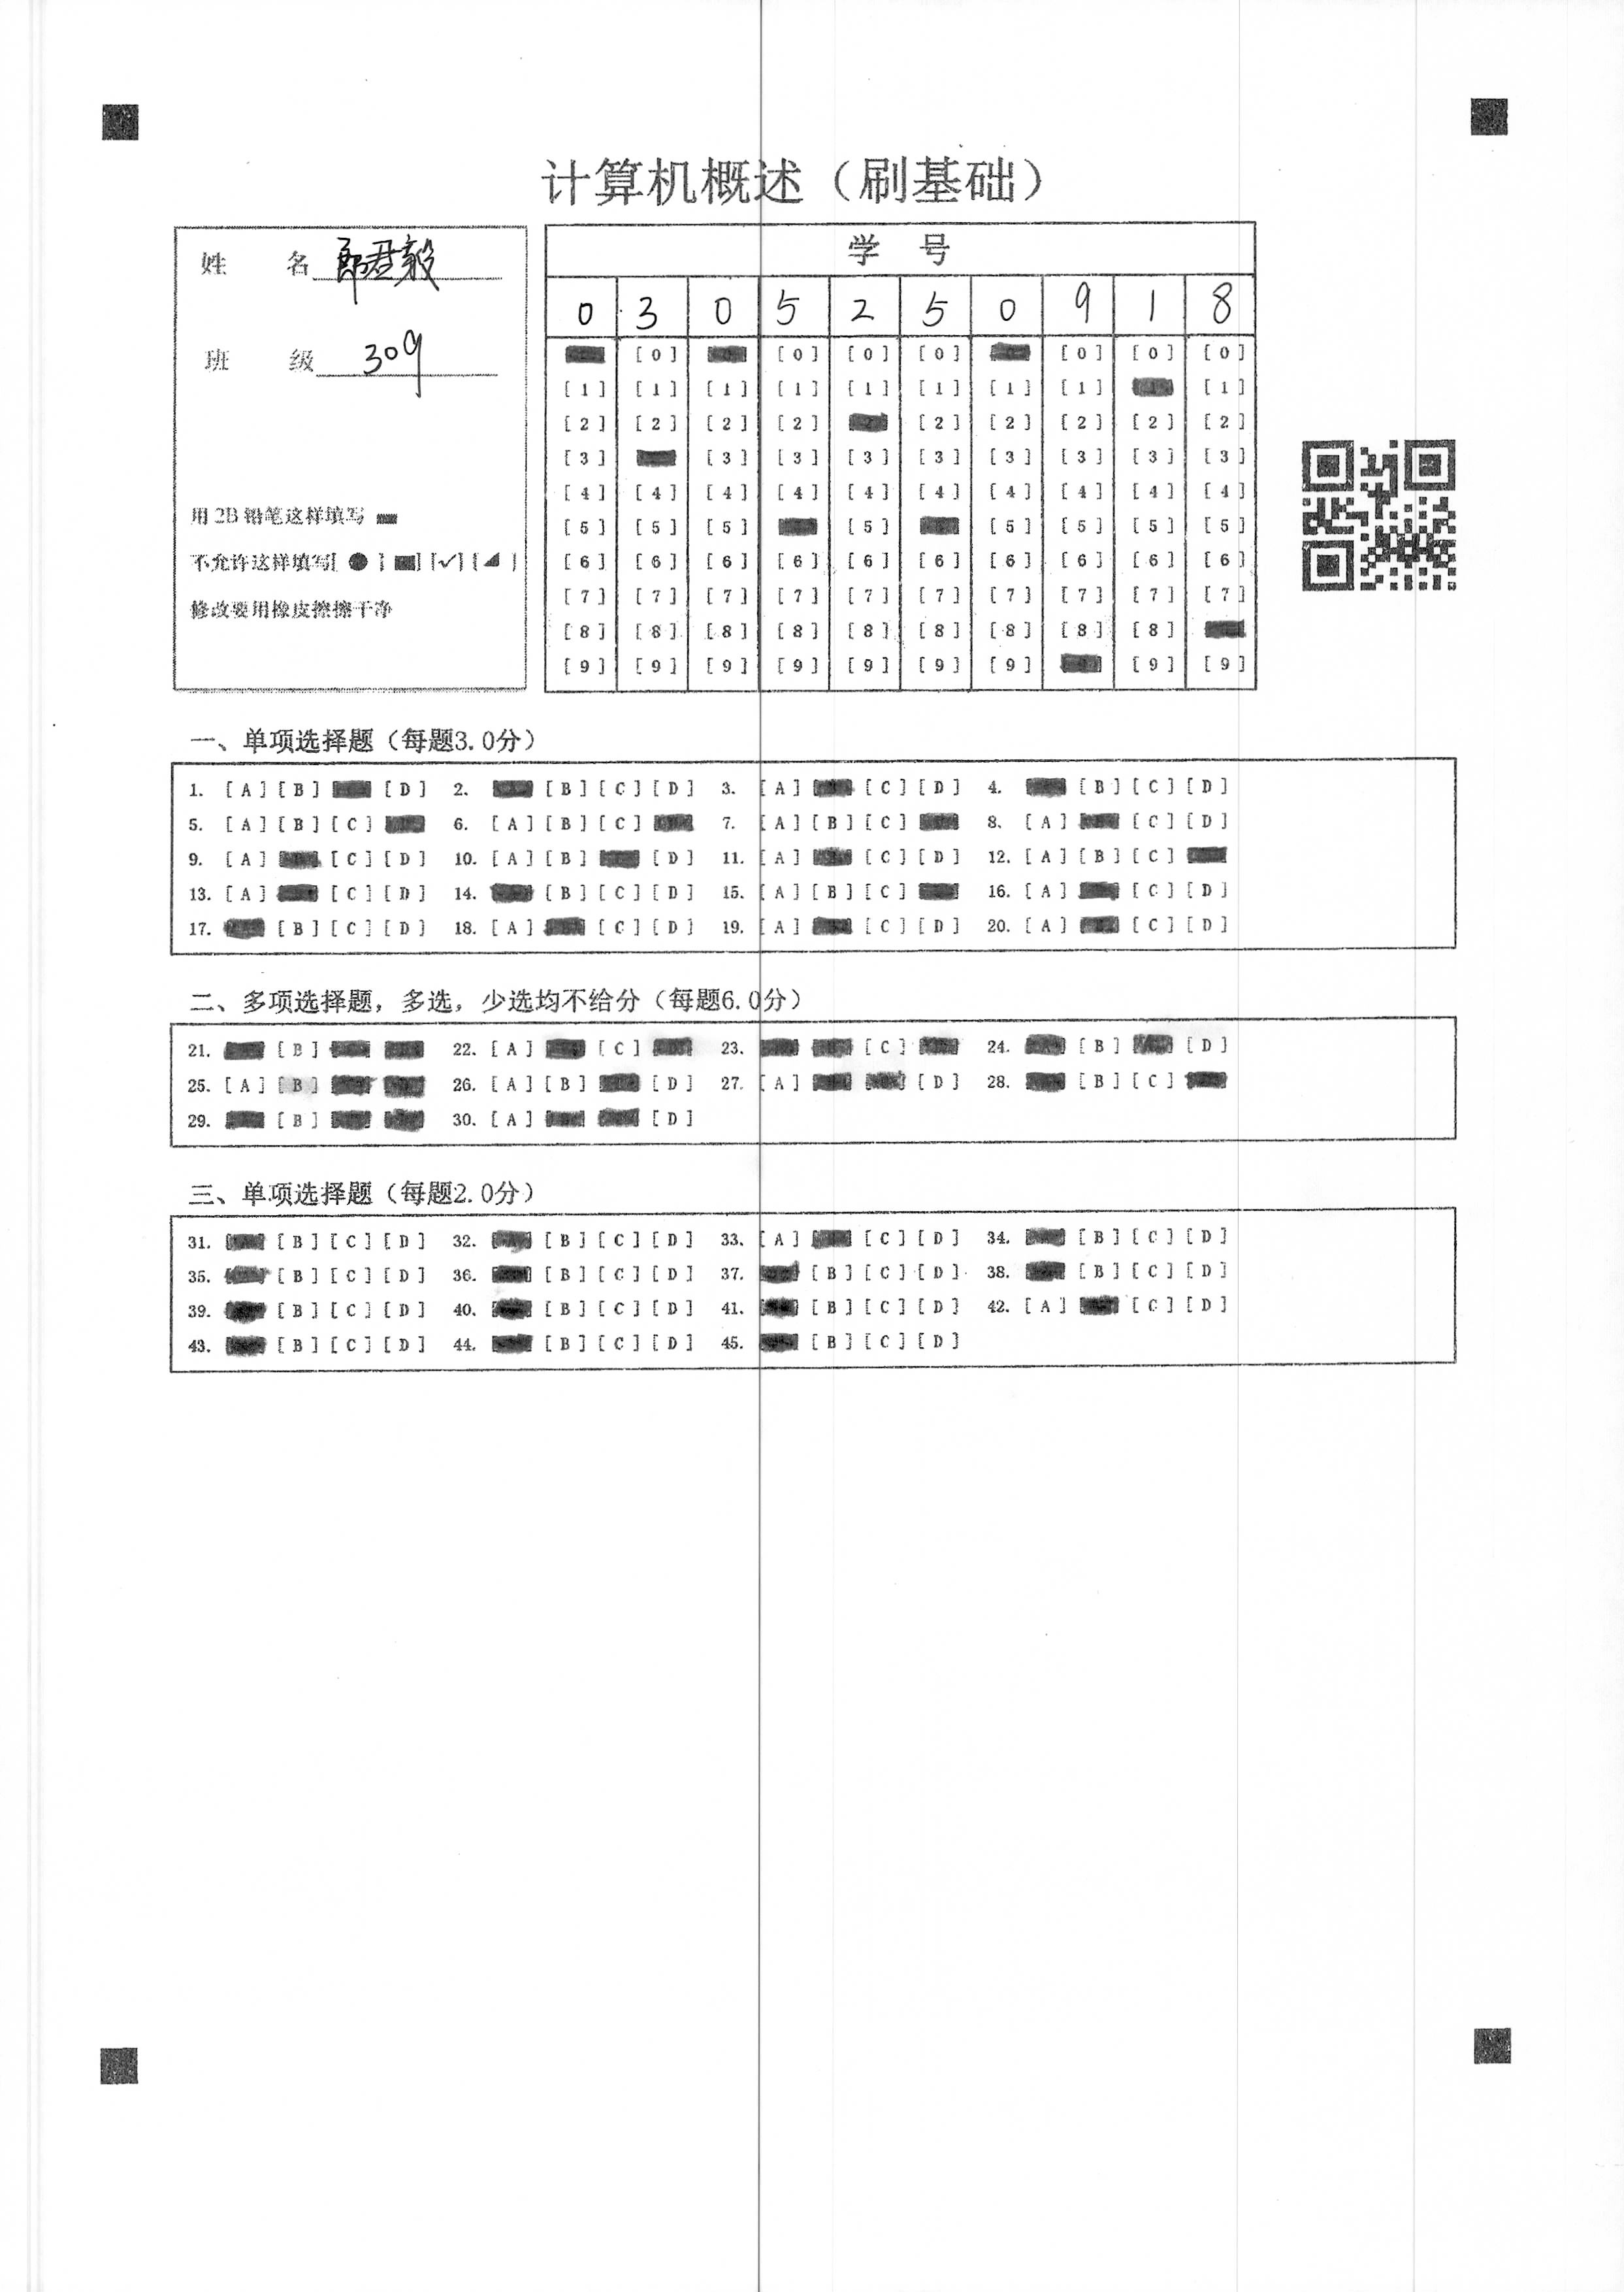 计算机概述（刷基础）
姓 名 郎君毅
班 级 309
用 2B 铅笔这样填写
不允许这样填写[ ● ] [■] [✓] [◢ ]
修改要用橡皮擦擦干净
学 号
0 3 0 5 2 5 0 9 1 8
[0] [0] [0] [0] [0] [0] [0]
[1] [1] [1] [1] [1] [1] [1] [1] [1]
[2] [2] [2] [2] [2] [2] [2] [2] [2]
[3] [3] [3] [3] [3] [3] [3] [3] [3]
[4] [4] [4] [4] [4] [4] [4] [4] [4] [4]
[5] [5] [5] [5] [5] [5] [5] [5]
[6] [6] [6] [6] [6] [6] [6] [6] [6] [6]
[7] [7] [7] [7] [7] [7] [7] [7] [7] [7]
[8] [8] [8] [8] [8] [8] [8] [8] [8]
[9] [9] [9] [9] [9] [9] [9] [9] [9]
一、单项选择题（每题3.0分）
1. [A] [B] [D] 2. [B] [C] [D] 3. [A] [C] [D] 4. [B] [C] [D]
5. [A] [B] [C] 6. [A] [B] [C] 7. [A] [B] [C] 8. [A] [C] [D]
9. [A] [C] [D] 10. [A] [B] [D] 11. [A] [C] [D] 12. [A] [B] [C]
13. [A] [C] [D] 14. [B] [C] [D] 15. [A] [B] [C] 16. [A] [C] [D]
17. [B] [C] [D] 18. [A] [C] [D] 19. [A] [C] [D] 20. [A] [C] [D]
二、多项选择题，多选，少选均不给分（每题6.0分）
21. [B] 22. [A] [C] 23. [C] 24. [B] [D]
25. [A] [B] 26. [A] [B] [D] 27. [A] [D] 28. [B] [C]
29. [B] 30. [A] [D]
三、单项选择题（每题2.0分）
31. [B] [C] [D] 32. [B] [C] [D] 33. [A] [C] [D] 34. [B] [C] [D]
35. [B] [C] [D] 36. [B] [C] [D] 37. [B] [C] [D] 38. [B] [C] [D]
39. [B] [C] [D] 40. [B] [C] [D] 41. [B] [C] [D] 42. [A] [C] [D]
43. [B] [C] [D] 44. [B] [C] [D] 45. [B] [C] [D]